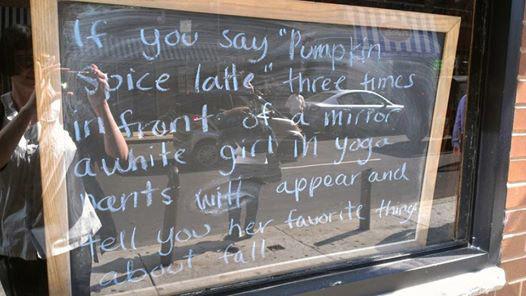 If you say "Pumpkin
Spice latte" three times
in front of a mirror
a white girl in yoga
pants will appear and
tell you her favorite things
about fall